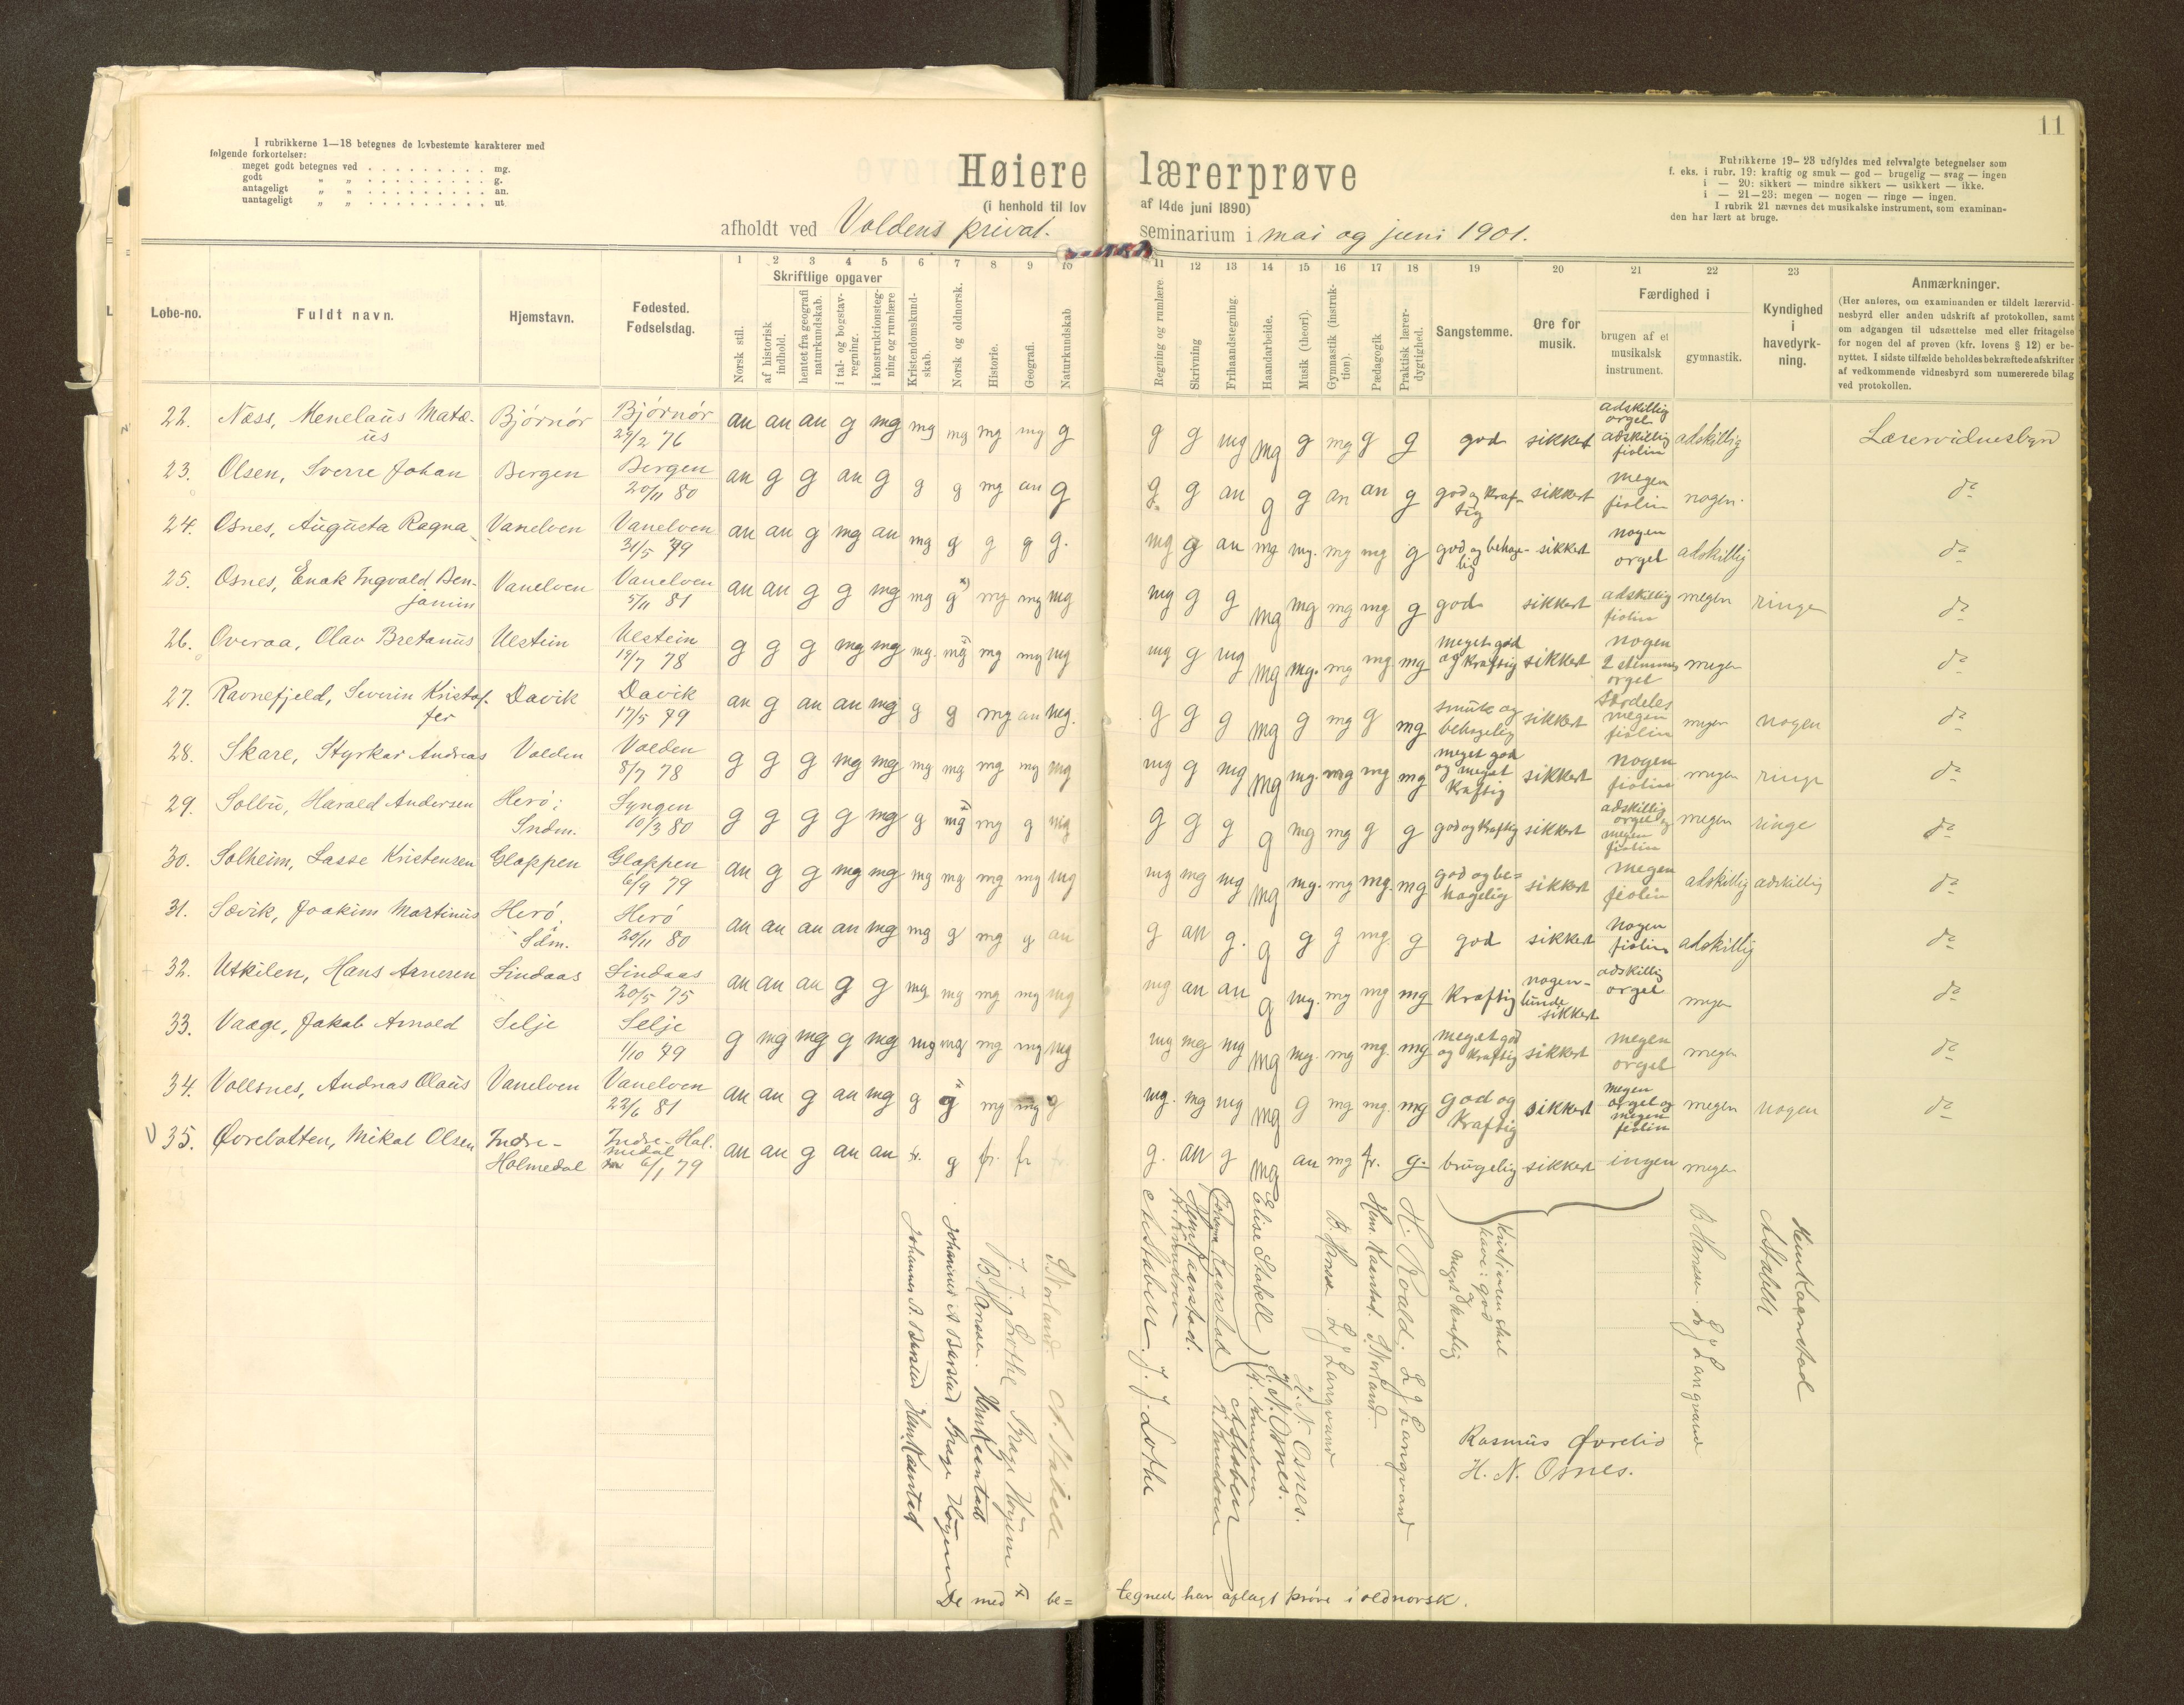 11
I rubrikkerne 1—18 betegnes de lovbestemte karakterer med
følgende forkortelser:
meget godt betegnes ved . . . . . . . . . . mg.
godt „ „ . . . . . . . . . . g.
antageligt „ „ . . . . . . . . . . an.
uantageligt „ „ . . . . . . . . . . ut.
Høiere lærerprøve
(i henhold til lov af 14de juni 1890)
afholdt ved Voldens privat. seminarium i mai og juni 1901.
Rubrikkerne 19—23 udfyldes med selvvalgte betegnelser som
f. eks. i rubr. 19: kraftig og smuk — god — brugelig — svag — ingen
i — 20: sikkert — mindre sikkert — usikkert — ikke.
i — 21—23: megen — nogen — ringe — ingen.
I rubrik 21 nævnes det musikalske instrument, som examinan-
den har lært at bruge.
1 2 3 4 5 6 7 8 9 10 11 12 13 14 15 16 17 18 19 20 21 22 23
Løbe-no.
Fuldt navn.
Hjemstavn.
Fødested.
Fødselsdag.
Skriftlige opgaver
Norsk stil.
af historisk indhold.
hentet fra geografi naturkundskab.
i tal- og bogstav-regning.
i konstruktionsteg-ning og rumlære
Kristendomskund-skab.
Norsk og oldnorsk.
Historie.
Geografi.
Naturkundskab
Regning og rumlære
Skrivning
Frihaandstegning.
Haandarbeide.
Musik (theori).
Gymnastik (instruk-tion).
Pædagogik
Praktisk lærer-dygtighed.
Sangstemme.
Øre for musik.
Færdighed i
brugen af et musikalsk instrument.
gymnastik.
Kyndighed i havedyrk-ning.
Anmærkninger.
(Her anføres, om examinanden er tildelt lærervid-
nesbyrd eller anden udskrift af protokollen, samt
om adgangen til udsættelse med eller fritagelse
for nogen del af prøven (kfr. lovens § 12) er be-
nyttet. I sidste tilfælde beholdes bekræftede afskrifter
af vedkommende vidnesbyrd som numererede bilag
ved protokollen.
22. Næss, Menelaus Matæ-us Bjørnør Bjørnør 29/2 76 an an an g mg mg mg mg mg g g g mg mg g mg g g god sikkert adskillig orgel adskillig fiolin adskillig Lærervidnesbyrd
23. Olsen, Sverre Johan Bergen Bergen 20/11 80 an g g an g g g mg an g g g an g g an an g god og kraf-tig sikkert megen fiolin nogen. do
24. Osnes, Augusta Ragna Vanelven Vanelven 31/5 79 an an g mg an mg g g g g. mg g an mg mg. mg mg g god og behage-lig sikkert nogen orgel adskillig do
25. Osnes, Enok Ingvald Ben-jamin Vanelven Vanelven 5/11 81 an an g g mg mg g x) mg mg mg mg g g mg mg mg mg g god sikkert adskillig fiolin megen ringe do
26. Overaa, Olav Bretanus Ulstein Ulstein 19/7 78 g g g mg mg mg. mg mg mg mg mg g mg mg mg. mg mg mg meget god og kraftig sikkert nogen 2 stemmig orgel megen do
27. Ravnefjeld, Severin Kristof-fer Davik Davik 17/5 79 an g an an mg g g mg an mg. g g g mg g mg g mg smuk og behagelig sikkert særdeles megen fiolin megen nogen do
28. Skare, Styrkar Andreas Volden Volden 8/7 78 g g g mg mg mg mg mg mg mg mg g mg mg mg. mg mg mg meget god og meget kraftig sikkert nogen fiolin megen ringe do
29. Solbu, Harald Andersen Herø i Sndm. Syngen 10/3 80 g g g g mg g mg x mg g mg g g g g mg mg g g god og kraftig sikkert adskillig orgel og megen fiolin megen ringe do
30. Solheim, Lasse Kristensen Gloppen Gloppen 6/9 79 an g g mg mg mg mg mg mg mg mg mg mg mg mg. mg mg. mg god og be-hagelig sikkert megen fiolin adskillig adskillig do
31. Sævik, Joakim Martinus Herø. Sdm. Herø 20/11 80 an an an an mg mg g mg g an g an g. g g g mg. g god sikkert nogen fiolin adskillig do
32. Utkilen, Hans Arnesen Lindaas Lindaas 20/5 75 an an an g g mg mg mg mg mg mg an an g mg. mg mg mg kraftig nogen-lunde sikkert adskillig orgel megen do
33. Vaage, Jakob Arnold Selje Selje 1/10 79 g mg mg g mg mg mg mg mg mg mg mg mg mg mg. mg mg. mg meget god og kraftig sikkert megen orgel megen do
34. Vollsnes, Andreas Olaus Vanelven Vanelven 22/6 81 an an g an mg g g mg mg g mg. mg mg mg g mg mg. mg god og kraftig sikkert megen orgel og megen fiolin megen nogen do
35. Øvrebotten, Mikal Olsen Indre-Holmedal Indre-Hol-medal 6/1 79 an an g an an fr. g fr. fr fr. g. an g mg an mg fr. g. brugelig sikkert ingen megen
Johannes A. Barstad Henr. Kaarstad
Johannes A Barstad Brage Høyem
B. Hanssen. Henr. Kaarstad
J. J. Lothe Brage Høyem
S. Norland. A. Stabell
A. Stabell. J. J. Lothe
Henr. Kaarstad.
A. Knudsen
Elise Stabell
H. N. Osnes.
H. N. Osnes.
B. Hanssen. L J Langvand
Henr. Kaarstad. S. Norland.
H. Roald. L J Langvand
Kristinen skal
have: god
og
meget kraftig
Rasmus Øvrelid
H. N. Osnes.
B Hanssen. L J Langvand
A Stabell
Henr Kaarstad
De med x be= tegnede har aflagt prøve i oldnorsk.